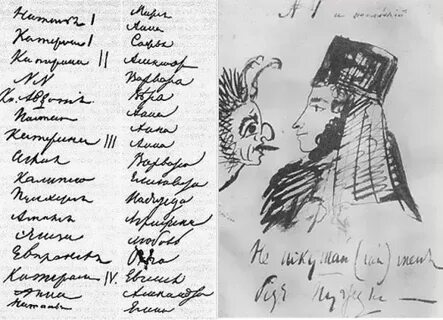 Наталья I
Катерина I
Катерина II
NN
Кн. Авдотия
Настасья
Катерина III
Аглая
Калипсо
Пулхерия
Амалия
Элиза
Евпраксея
Катерина IV.
Анна
Наталья
Мария
Анна
Софья
Александра
Варвара
Вера
Анна
Анна
Анна
Варвара
Елизавета
Надежда
Аграфена
Любовь
Ольга
Евгения
Александра
Елена
Не искушай (сай) меня
без нужды